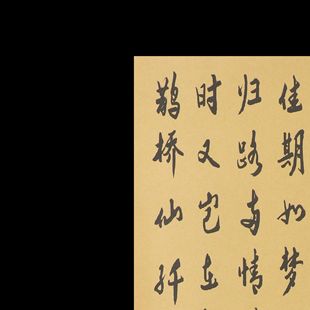 佳期如梦
归路两情
时又岂在
鹊桥仙纤